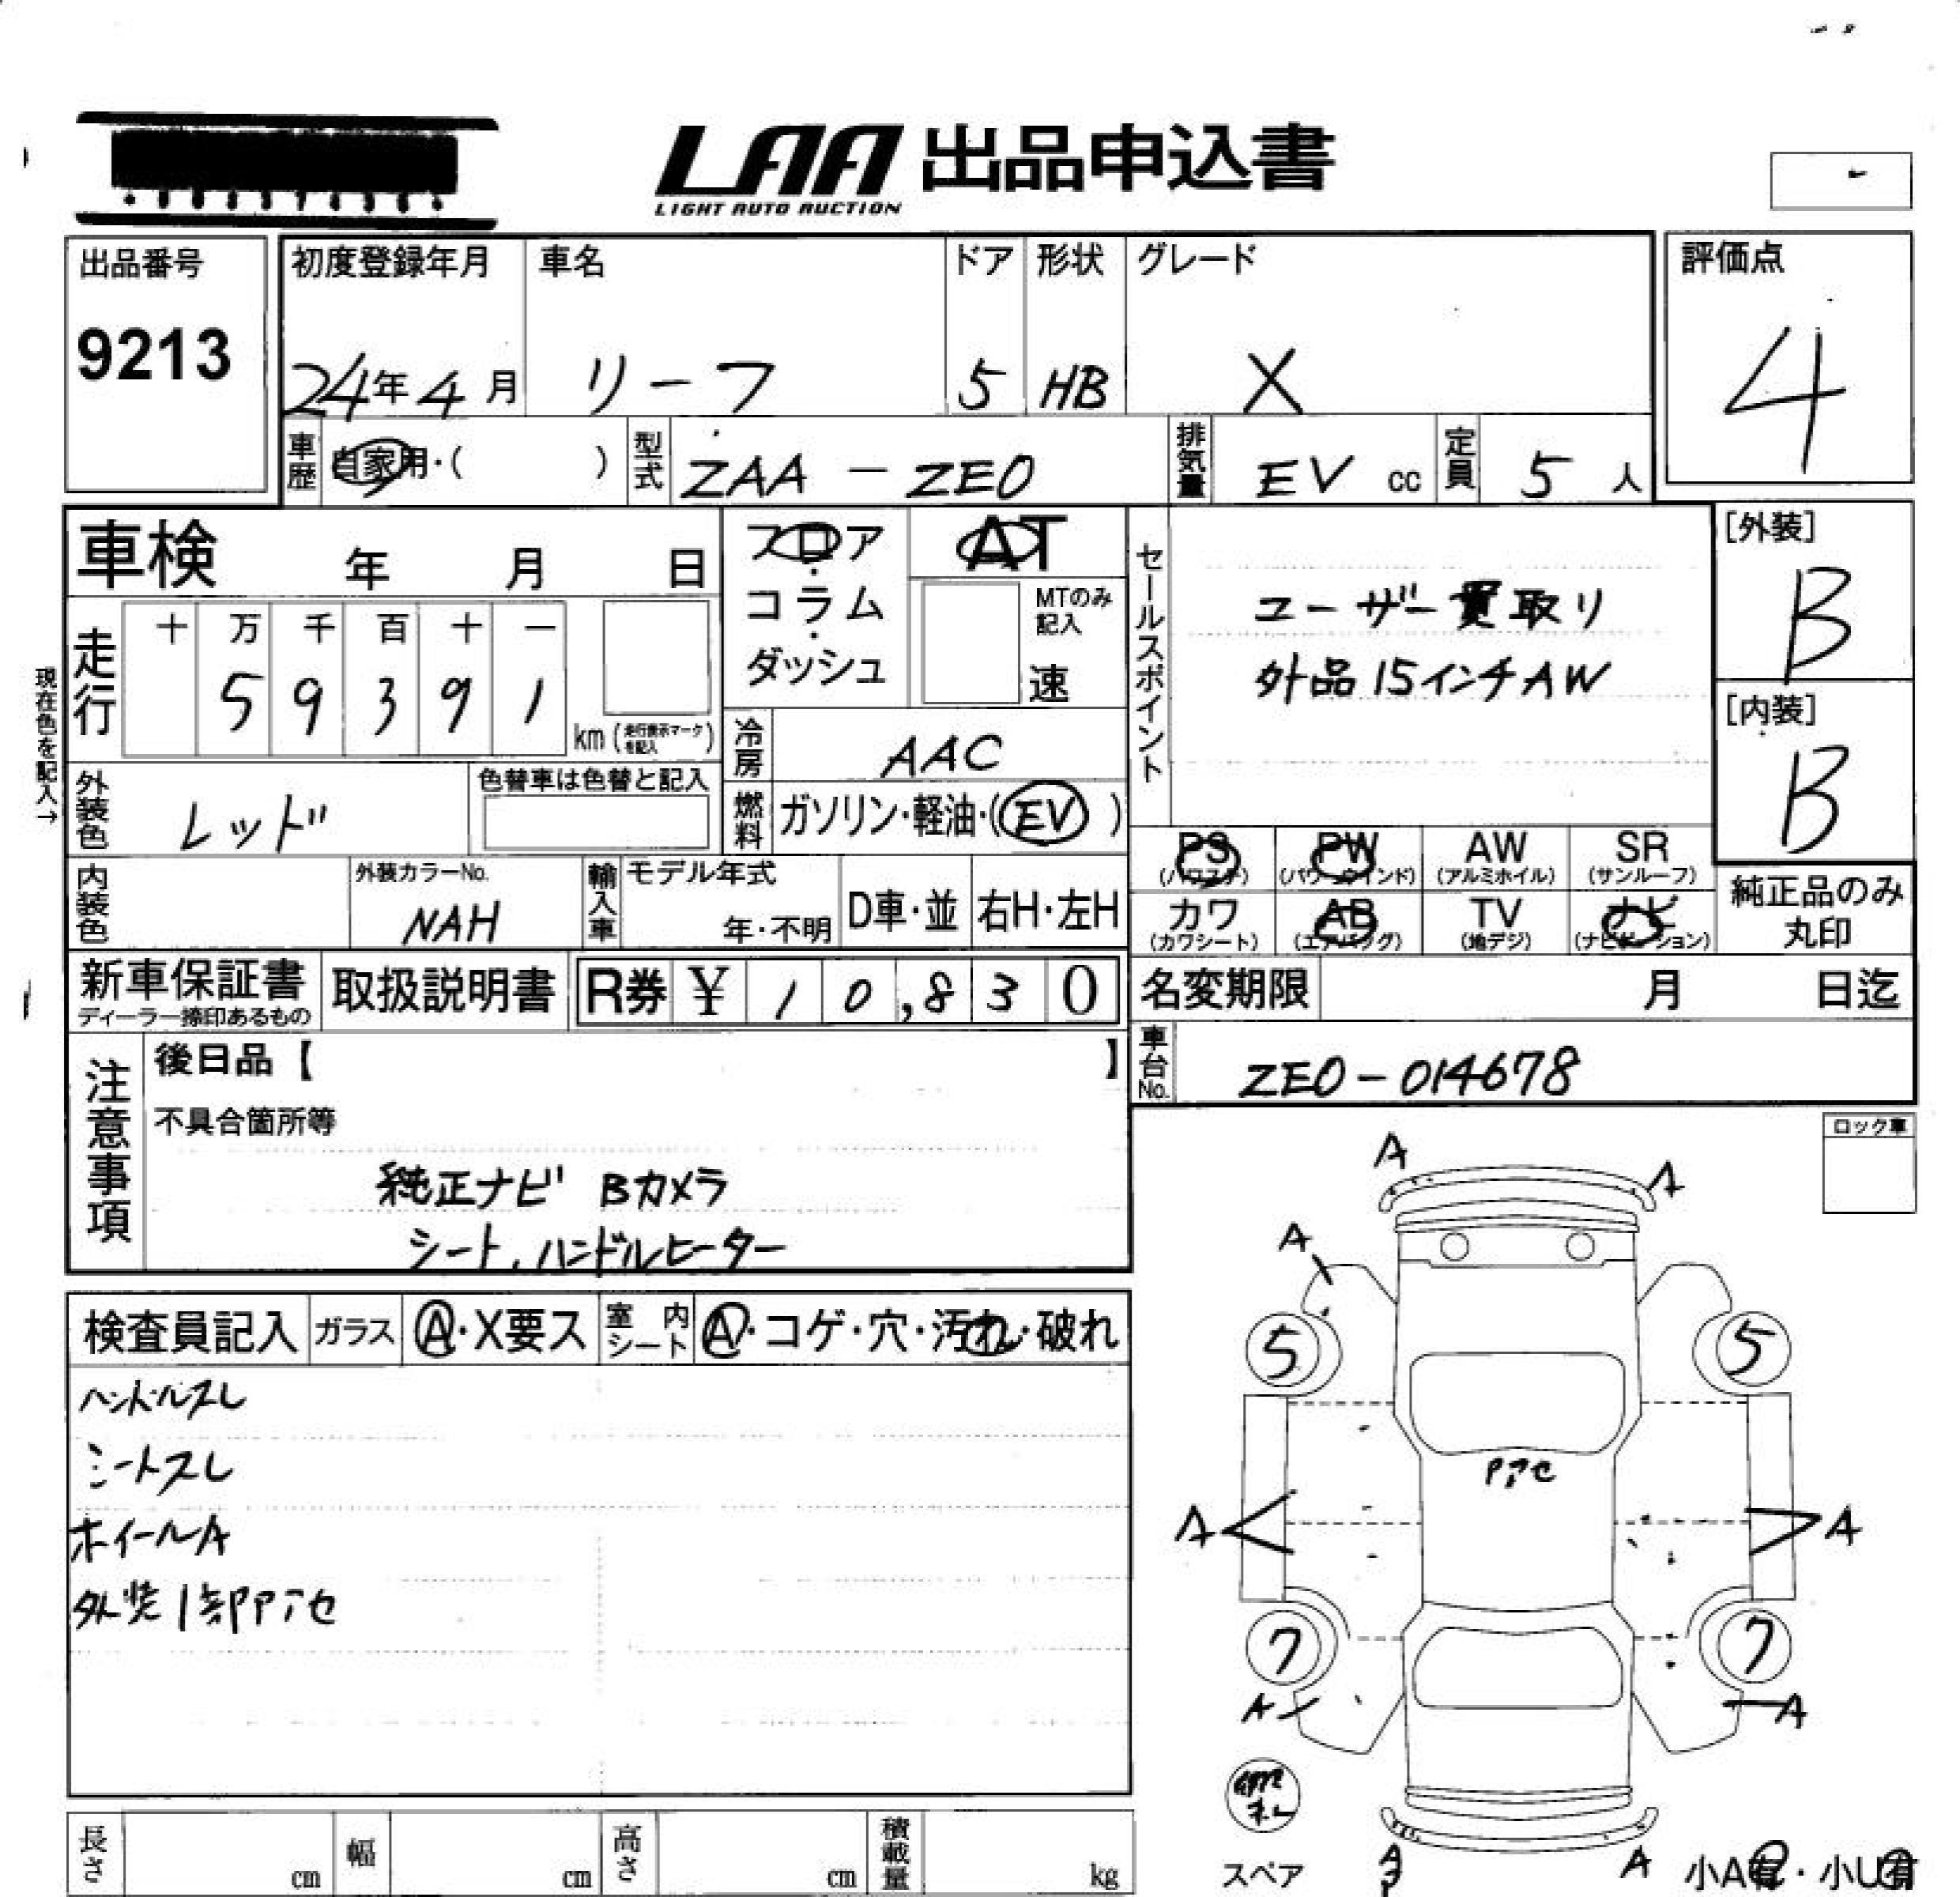 LAA 出品申込書
LIGHT AUTO AUCTION
出品番号
9213
初度登録年月
24年4月
車名
リーフ
ドア
5
形状
HB
グレード
X
評価点
4
車歴 自家用・( )
型式 ZAA-ZE0
排気量 EV cc
定員 5 人
車検 年 月 日
フロア・コラム・ダッシュ
AT
MTのみ記入
速
セールスポイント
ユーザー買取り
外品15インチAW
[外装]
B
[内装]
B
現在色を記入→
走行 十 万 千 百 十 一
5 9 3 9 1 km (走行表示マークを記入)
冷房 AAC
燃料 ガソリン・軽油・(EV)
外装色 レッド
色替車は色替と記入
内装色
外装カラーNo.
NAH
輸入車
モデル年式
年・不明
D車・並
右H・左H
PS (パワステ)
PW (パワーウインド)
AW (アルミホイル)
SR (サンルーフ)
カワ (カワシート)
AB (エアバッグ)
TV (地デジ)
ナビ (ナビゲーション)
純正品のみ丸印
新車保証書
ディーラー捺印あるもの
取扱説明書
R券 ¥ 10,830
名変期限 月 日迄
車台No. ZE0-014678
注意事項
後日品【 】
不具合箇所等
純正ナビ Bカメラ
シート,ハンドルヒーター
ロック車
検査員記入
ガラス A・X要ス
室内シート A・コゲ・穴・汚れ・破れ
ハンドルスレ
シートスレ
ホイールA
外装1部Pアセ
A
A
A
5
5
Pアセ
A
A
7
7
A
A
スペア
A
A
小A有・小U有
長さ cm
幅 cm
高さ cm
積載量 kg